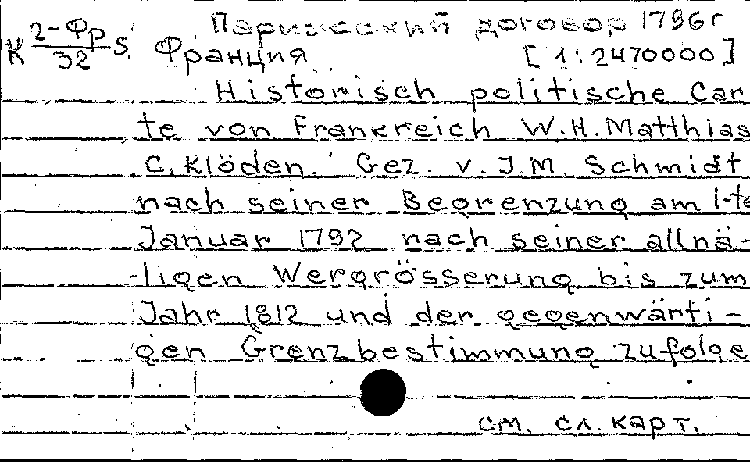 К 2-Фр/32 S. Парижский договор 1796 г
Франция [1:2470000]
Historisch politische Car
te von Frankreich W.H. Matthias
C. Klöden. Gez. v. J.M. Schmidt
nach seiner Begrenzung am 1-te
Januar 1792 nach seiner allnä-
ligen Wergrösserung bis zum
Jahr 1812 und der gegenwärti-
gen Grenzbestimmung zufolge
см. сл. карт.